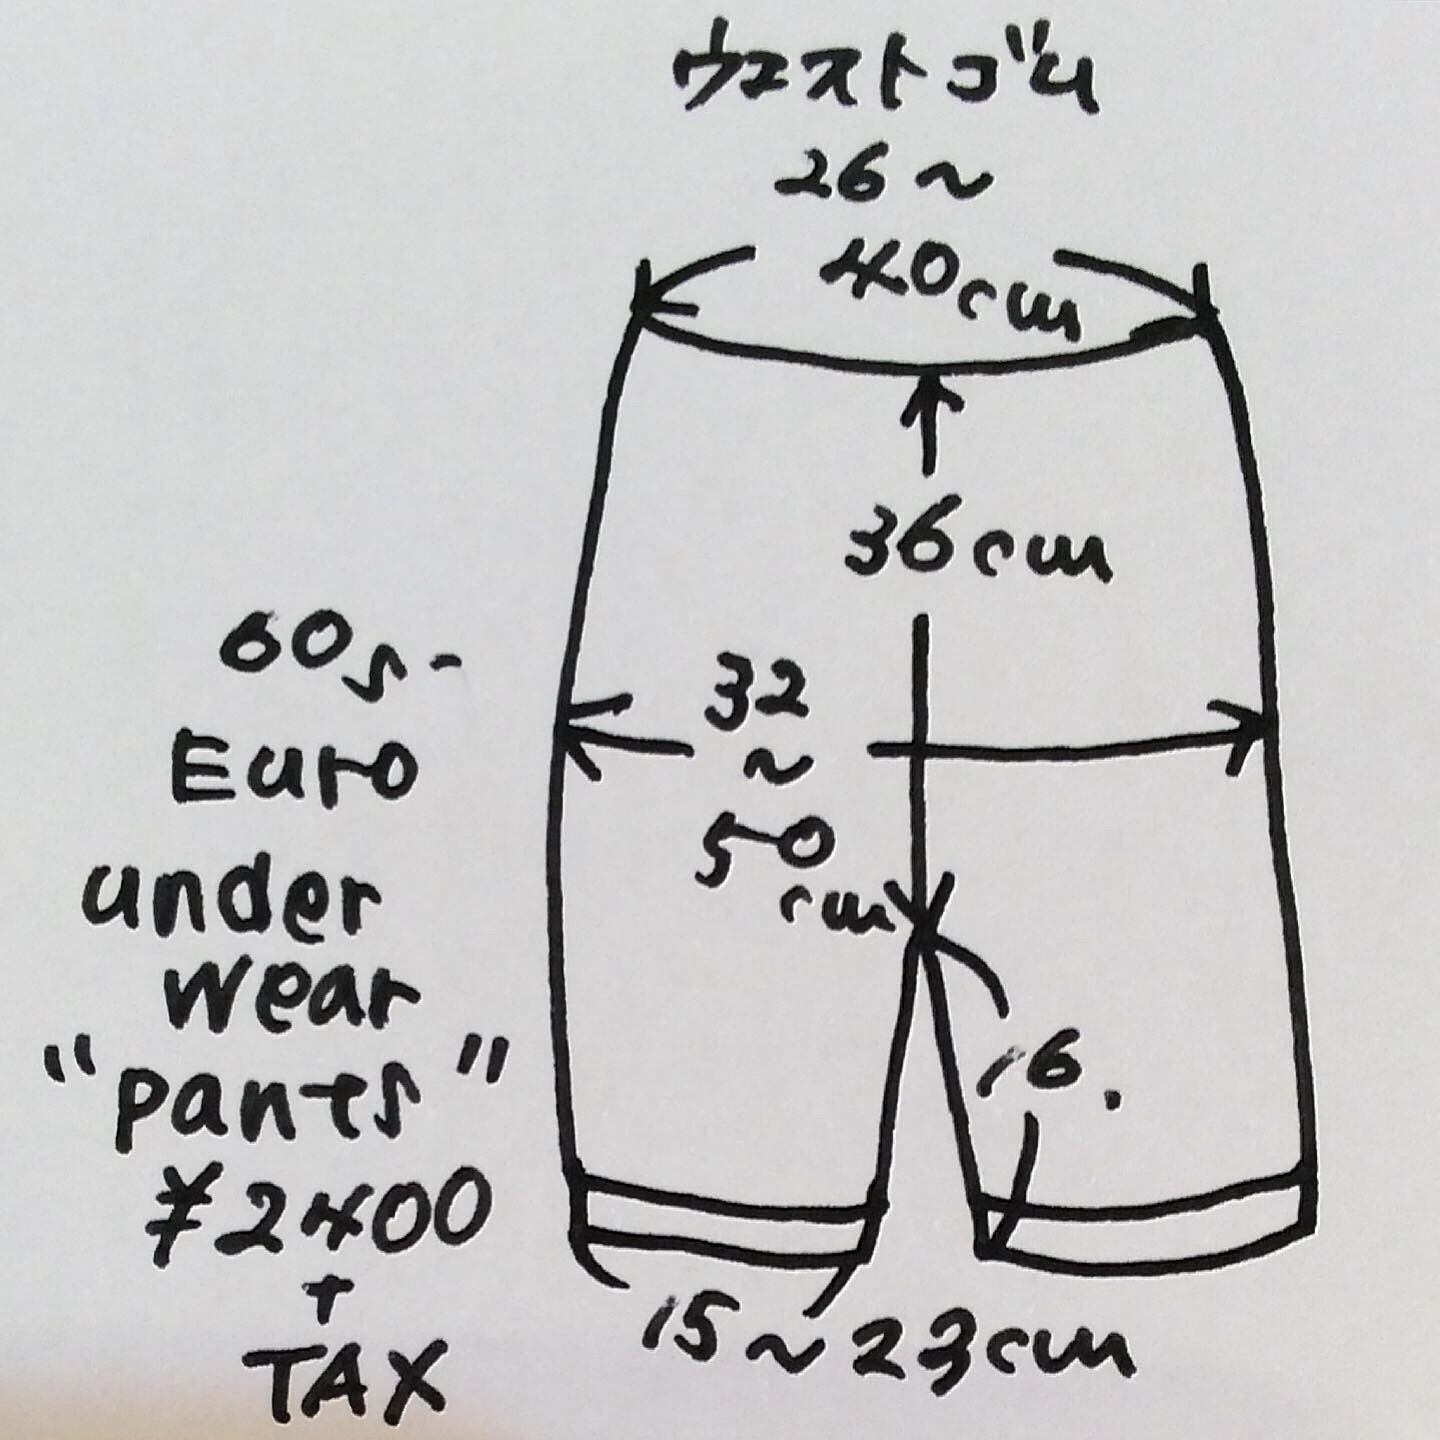 ウエストゴム
26～
40cm
36cm
32
～
50
cm
16.
15～23cm
60s-
Euro
under
wear
"pants"
¥2400
+
TAX